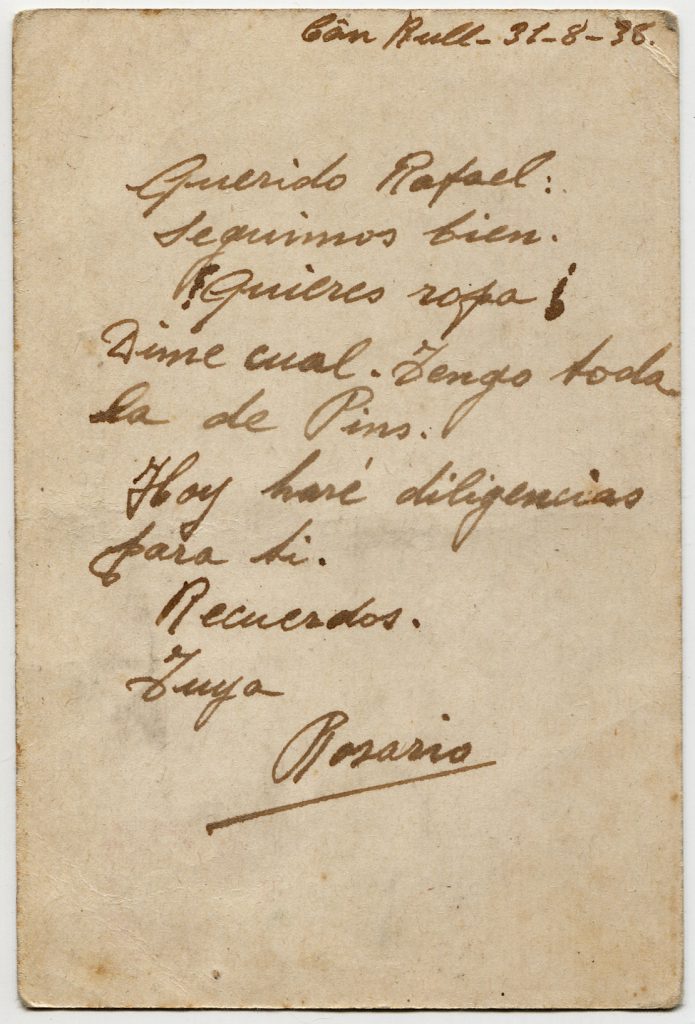 Cân Rull - 31-8-38.
Querido Rafael:
Seguimos bien.
¿Quieres ropa?
Dime cual. Tengo toda
la de Pins.
Hoy haré diligencias
para ti.
Recuerdos.
Tuya
Rosario